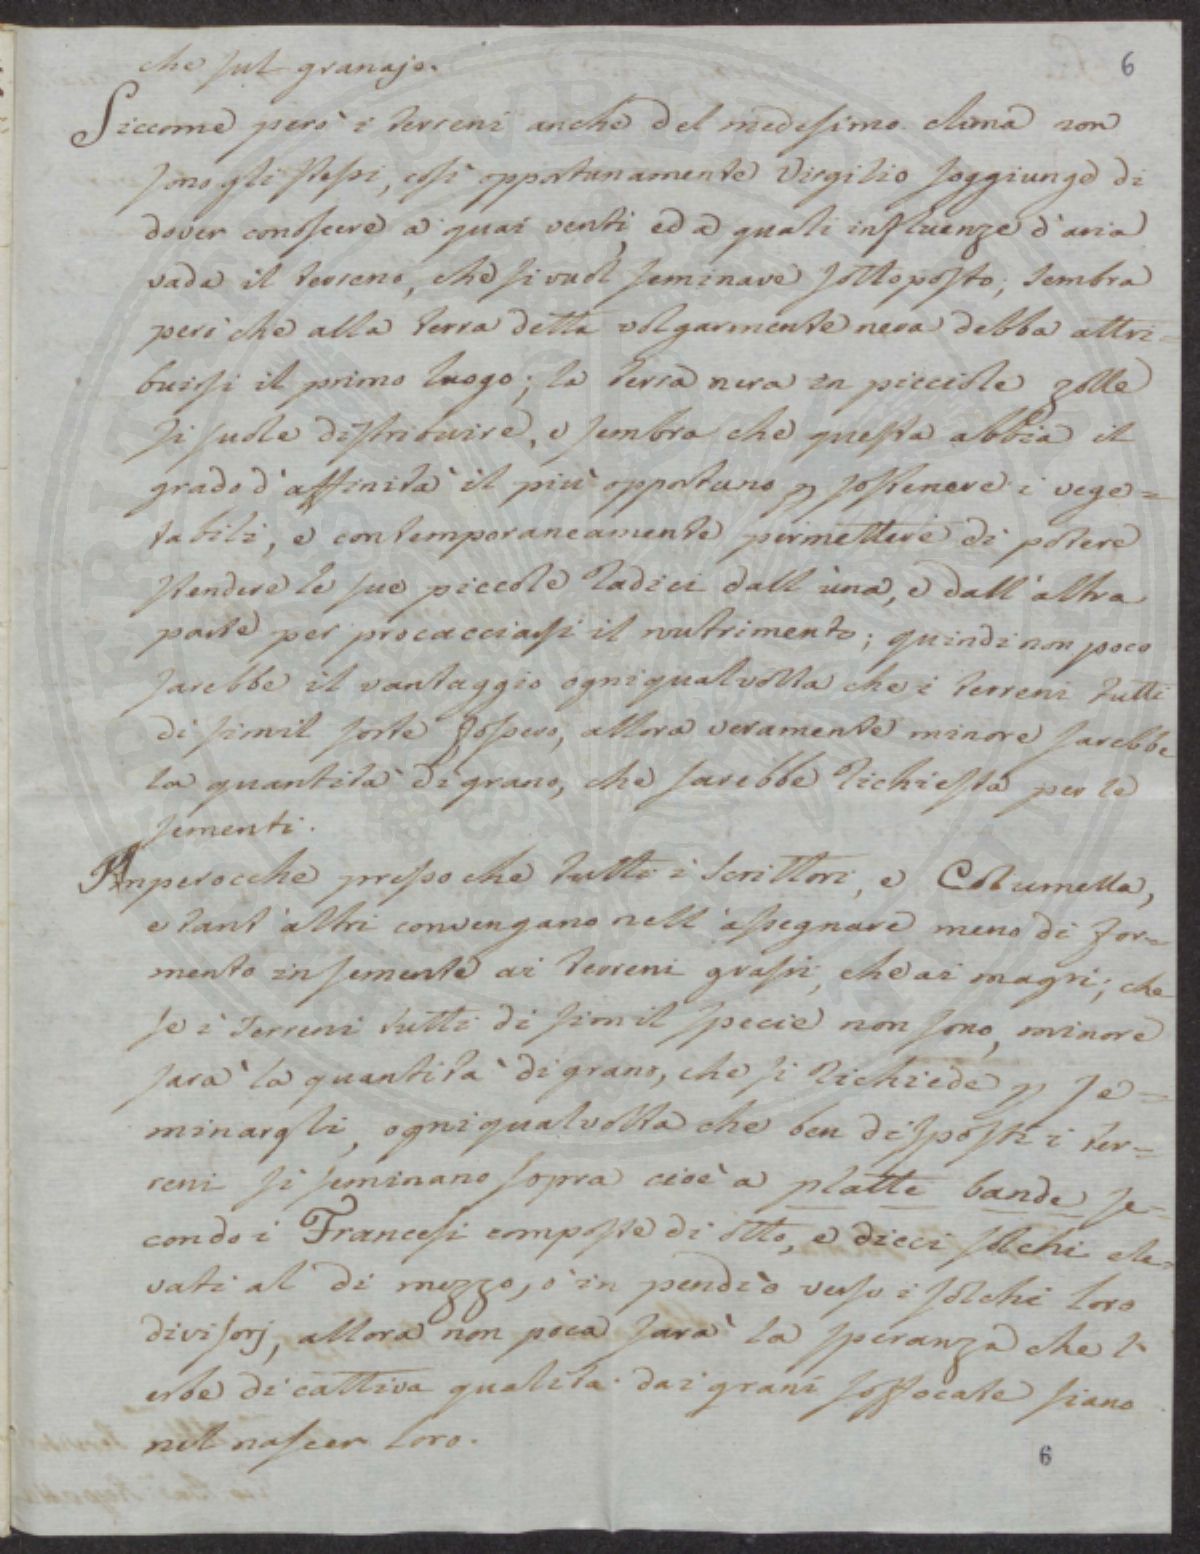 che sul granajo.
6
Siccome però i terreni anche del medesimo clima non
sono gli stessi, così opportunamente Virgilio soggiunge di
dover conoscere a' quai venti, ed a quali influenze d'aria
vada il terreno, che si vuol seminare sottoposto; sembra
però che alla terra detta volgarmente nera debba attri=
buirsi il primo luogo; la terra nera in picciole zolle
si suole distribuire, e sembra che questa abbia il
grado d'affinità il più opportuno p sostenere i vege=
tabili, e contemporaneamente permettere di potere
stendere le sue piccole radici dall'una, e dall'altra
parte per procacciarsi il nutrimento; quindi non poco
sarebbe il vantaggio ogni qual volta che i terreni tutti
di simil sorte fossero, allora veramente minore sarebbe
la quantità di grano, che sarebbe richiesta per le
sementi.
Imperocche presso che tutti i Scrittori, e Columella,
e tant'altri convengano nell'assegnare meno di for=
mento in semente ai terreni grassi, che ai magri; che
se i Terreni tutti di simil specie non sono, minore
sarà la quantità di grano, che si richiede p se=
minargli, ogni qual volta che ben disposti i ter=
reni si seminano sopra cioè a platte bande se=
condo i Francesi composte di otto, e dieci solchi ele=
vati al di mezzo, ò in pendìo verso i solchi loro
divisorj, allora non poca sarà la speranza che l'
erbe di cattiva qualità dai grani soffocate siano
nel nascer loro.
6